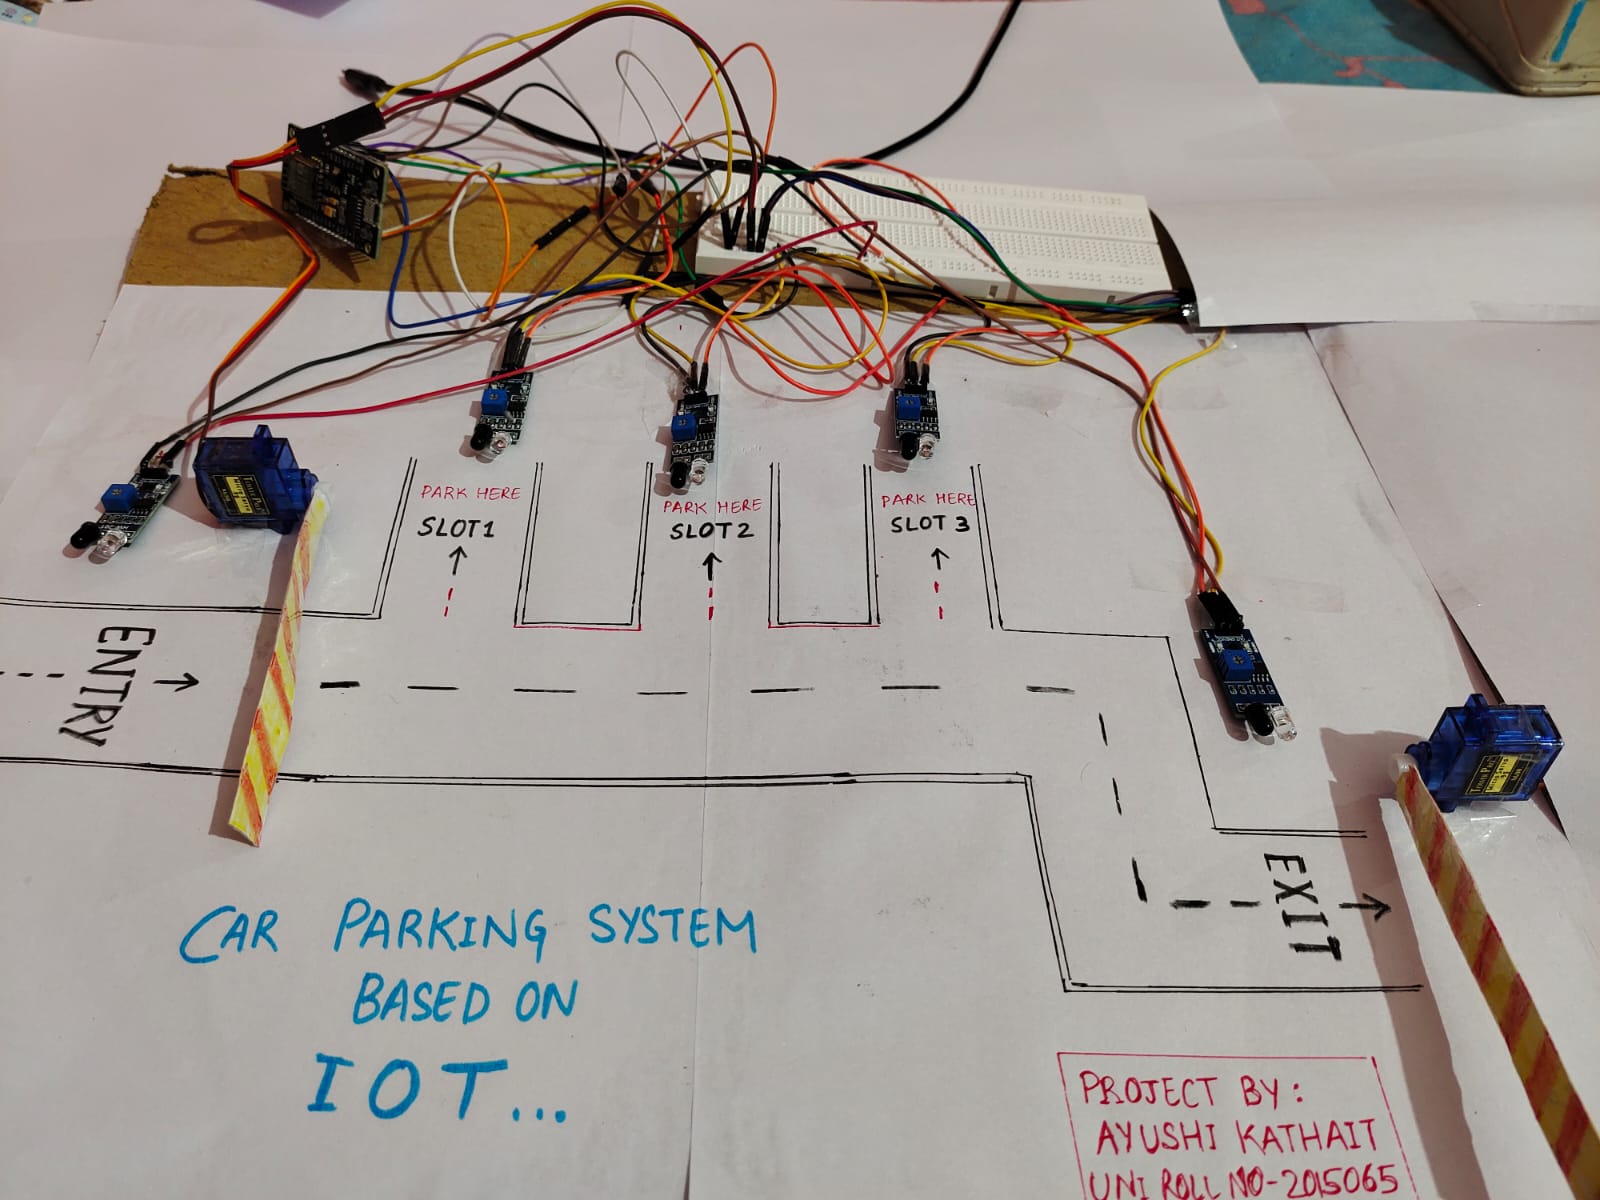 PARK HERE
SLOT1
PARK HERE
SLOT 2
PARK HERE
SLOT 3
ENTRY
EXIT
CAR PARKING SYSTEM
BASED ON
IOT...
PROJECT BY:
AYUSHI KATHAIT
UNI ROLL NO-2015065